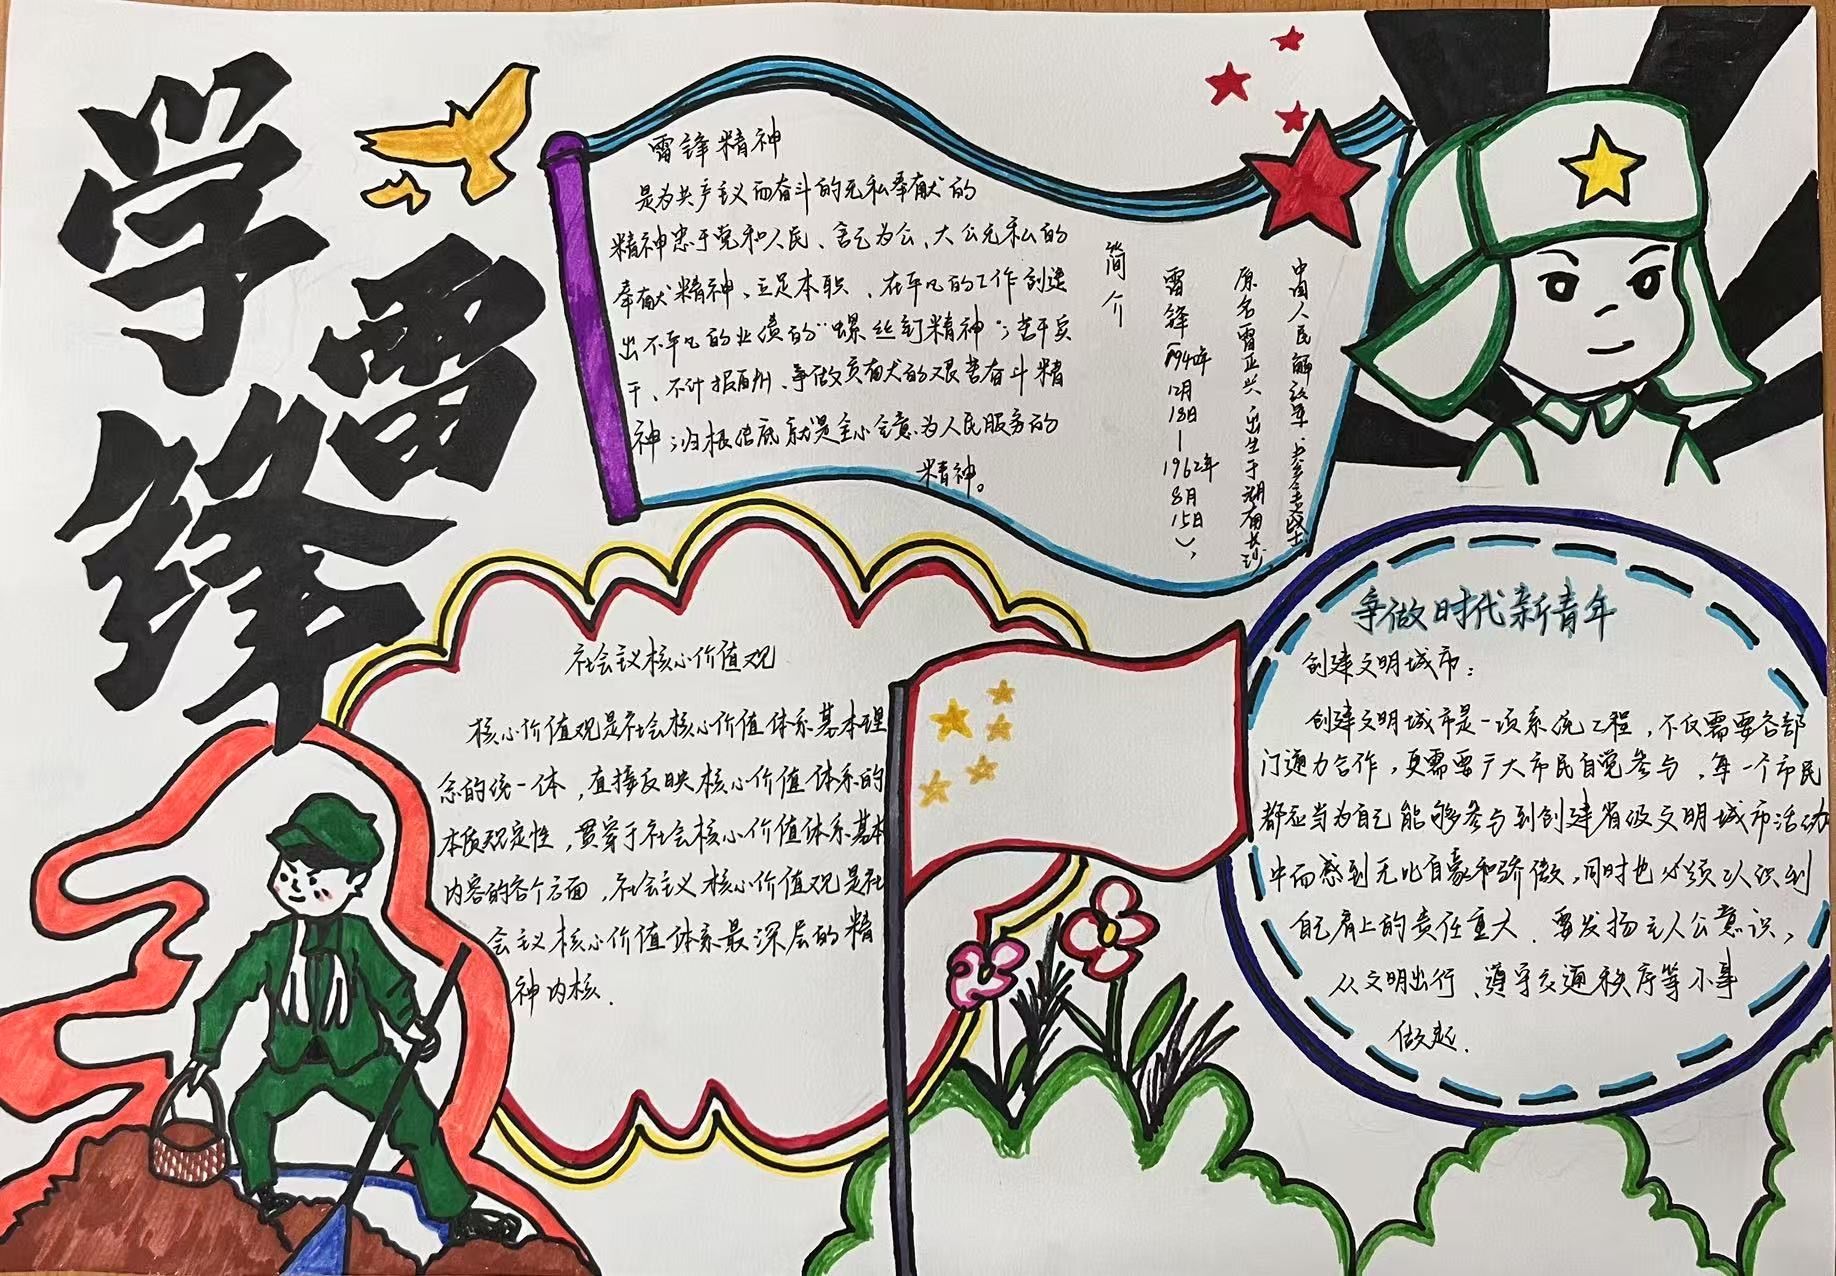 学
雷
锋
雷锋精神
是为共产主义而奋斗的无私奉献的
精神忠于党和人民、舍己为公、大公无私的
奉献精神、立足本职、在平凡的工作创造
出不平凡的业绩的“螺丝钉精神”；苦干实
干、不计报酬、争做贡献的艰苦奋斗精
神；归根结底就是全心全意为人民服务的
精神。
简介
雷锋（1940年12月18日—1962年8月15日），
原名雷正兴，出生于湖南长沙
中国人民解放军
社会主义核心价值观
核心价值观是社会核心价值体系基本理
念的统一体，直接反映核心价值体系的
本质规定性，贯穿于社会核心价值体系基本
内容的各个方面，社会主义核心价值观是社
会主义核心价值体系最深层的精
神内核.
争做时代新青年
创建文明城市：
创建文明城市是一项系统工程，不仅需要各部
门通力合作，更需要广大市民自觉参与，每一个市民
都应当为自己能够参与到创建省级文明城市活动
中而感到无比自豪和骄傲，同时也必须认识到
自己肩上的责任重大．要发扬主人公意识，
从文明出行、遵守交通秩序等小事
做起.